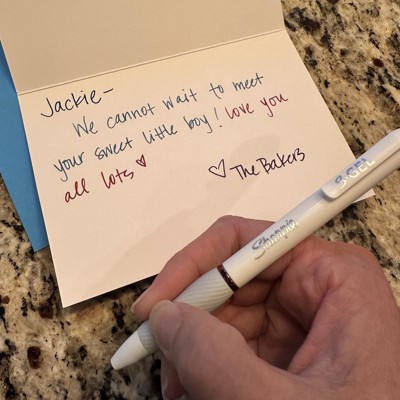 Jackie-
We cannot wait to meet
your sweet little boy! love you
all lots ♡
♡ The Bakers
Sharpie
S·GEL